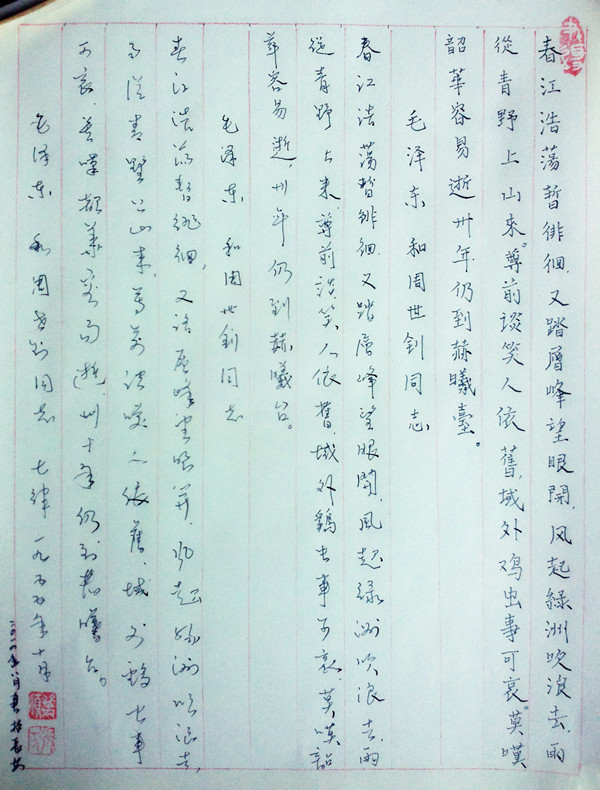 春江浩蕩暫徘徊.又踏層峰望眼開.风起綠洲吹浪去.雨
從青野上山來。尊前谈笑人依舊,域外鸡虫事可哀。莫嘆
韶華容易逝卅年仍到赫曦臺。
毛泽东 和周世钊同志
春江浩荡暫徘徊.又踏層峰望眼開.风起绿洲吹浪去.雨
從青野上山来.尊前談笑人依舊.域外鷄虫事可哀.莫嘆韶
華容易逝卅年仍到赫曦台。
毛泽东 和周世钊同志
春江浩荡暫徘徊,又踏层峰望眼开.风起绿洲吹浪去,
雨從青野上山来,尊前谈笑人依舊.域外鷄虫事
可哀.莫嘆韶華容易逝,卅年仍到赫曦台。
毛泽东 和周世钊同志 七律 一九五五年十月